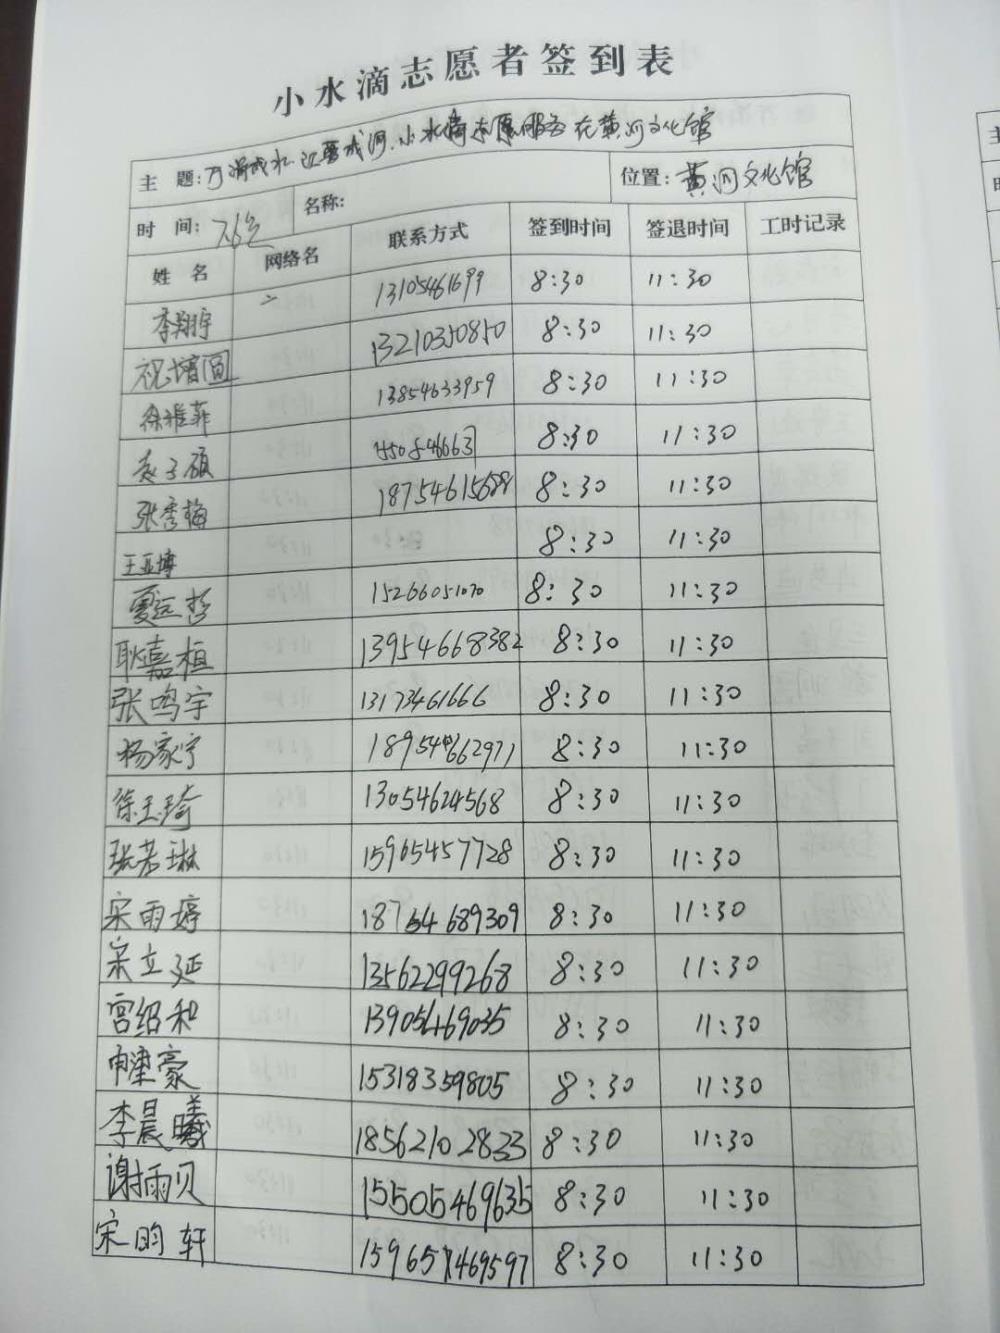 小水滴志愿者签到表
主 题: 小水滴志愿服务在黄河文化馆
时 间: 名称: 位置: 黄河文化馆
姓 名 网络名 联系方式 签到时间 签退时间 工时记录
李翔宇 13105461699 8:30 11:30
祝培圆 13210350850 8:30 11:30
徐雅菲 13854633959 8:30 11:30
袁子硕 8:30 11:30
张秀梅 8:30 11:30
王亚博 8:30 11:30
夏远哲 15266051070 8:30 11:30
耿嘉桓 13954668382 8:30 11:30
张鸣宇 13173461666 8:30 11:30
杨家宁 8:30 11:30
徐玉琦 13054624568 8:30 11:30
张若琳 15965457728 8:30 11:30
宋雨婷 18754689309 8:30 11:30
宋立延 13562299268 8:30 11:30
宫绍和 13905469035 8:30 11:30
豪 15318359805 8:30 11:30
李晨曦 18562102833 8:30 11:30
谢雨贝 15505469635 8:30 11:30
宋昀轩 8:30 11:30